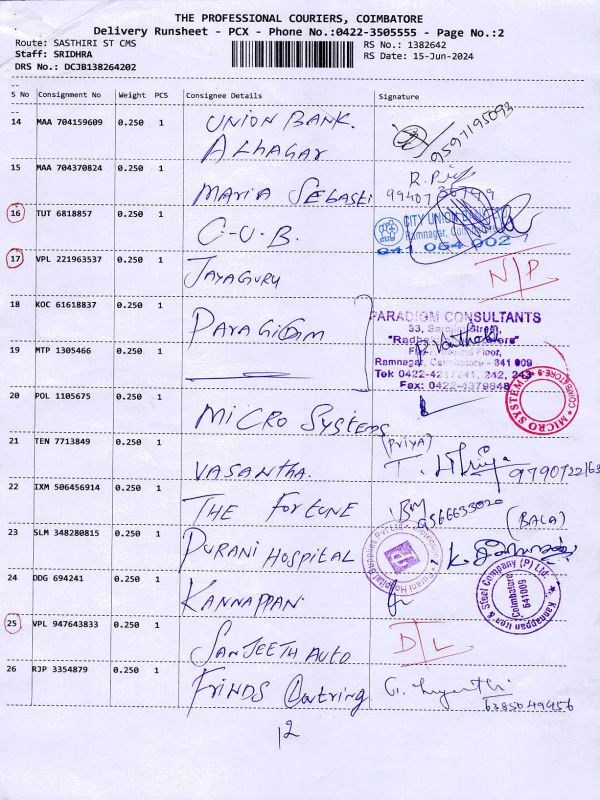 THE PROFESSIONAL COURIERS, COIMBATORE
Delivery Runsheet - PCX - Phone No.:0422-3505555 - Page No.:2
Route: SASTHIRI ST CMS RS No.: 1382642
Staff: SRIDHRA RS Date: 15-Jun-2024
DRS No.: DCJB138264202
S No Consignment No Weight PCS Consignee Details Signature
14 MAA 704159609 0.250 1 UNION BANK.
ALHAGAR 9597195093
15 MAA 704370824 0.250 1 MARIA SEBASTI R.
16 TUT 6818857 0.250 1 C.U.B. CITY UNION BANK
Ramnagar,
641 054 002
17 VPL 221963537 0.250 1 JAYAGURU N/P
18 KOC 61618837 0.250 1 PARAGIGM PARADIGM CONSULTANTS
33, Street,
Ramnagar, Coimbatore - 641 009
19 MTP 1305466 0.250 1 Tek 0422-4217241, 242, 243
Fax: 0422-4379848
20 POL 1105675 0.250 1 MICRO SYSTEMS MICRO SYSTEMS COIMBATORE-9
21 TEN 7713849 0.250 1 VASANTHA. (PRIYA)
22 IXM 506456914 0.250 1 THE FORTUNE 9566633020
(BALA)
23 SLM 348280815 0.250 1 PURANI HOSPITAL Purani Hospital Supplies Pvt Ltd
24 DDG 694241 0.250 1 KANNAPPAN Kannappan Iron & Steel Company (P) Ltd. Coimbatore 641009
25 VPL 947643833 0.250 1 SANJEETH AUTO D/L
26 RJP 3354879 0.250 1 FRINDS G.
6385049456
12